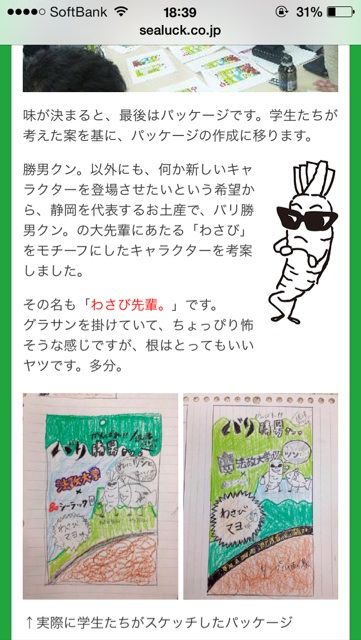 SoftBank 18:39 31%
sealuck.co.jp
味が決まると、最後はパッケージです。学生たちが
考えた案を基に、パッケージの作成に移ります。
勝男クン。以外にも、何か新しいキャ
ラクターを登場させたいという希望か
ら、静岡を代表するお土産で、バリ勝
男クン。の大先輩にあたる「わさび」
をモチーフにしたキャラクターを考案
しました。
その名も「わさび先輩。」です。
グラサンを掛けていて、ちょっぴり怖
そうな感じですが、根はとってもいい
ヤツです。多分。
バリ勝男
法政大学
×
シーラック
わさび
マヨ味
バリ勝男
法政大学
わさび
マヨ
↑実際に学生たちがスケッチしたパッケージ